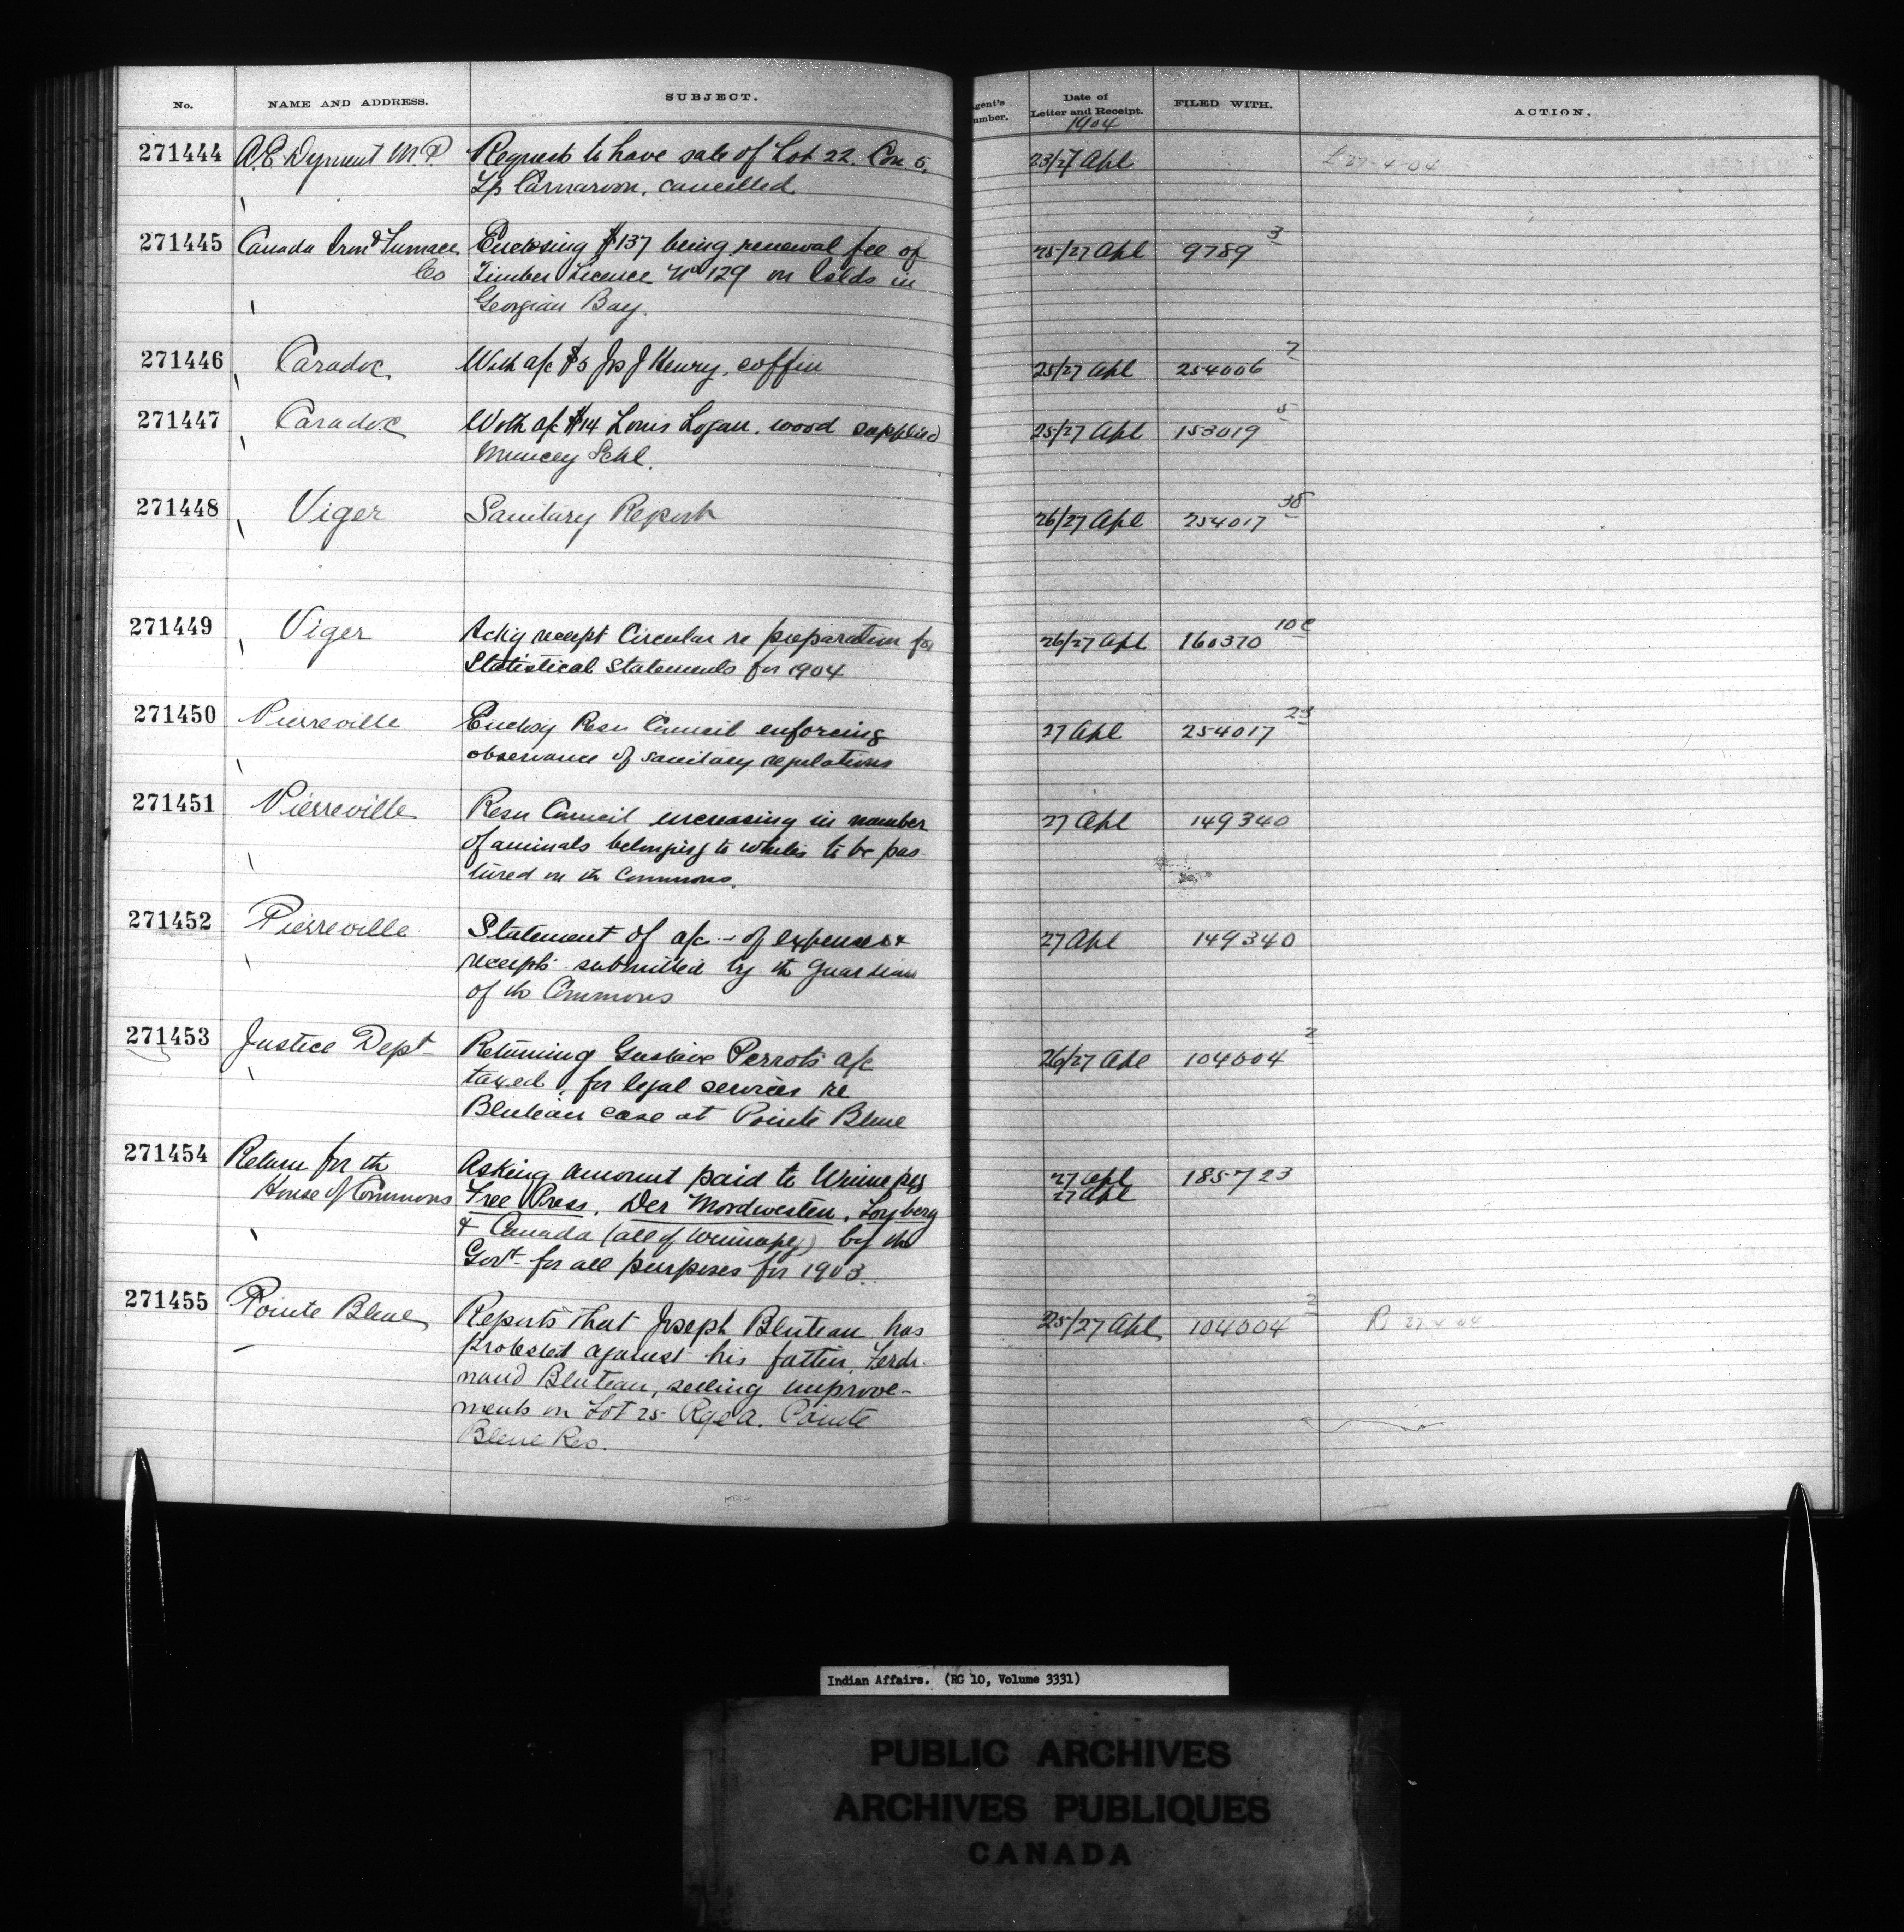 No. NAME AND ADDRESS. SUBJECT. gent's umber. Date of Letter and Receipt. FILED WITH. ACTION.
1904
271444 A.E. Dyment M.P. Requests to have sale of Lot 22. Con 5, 23/27 Apl L 27-4-04
Tp Carnarvon, cancelled
271445 Canada Iron Furnace Enclosing $137 being renewal fee of 25/27 Apl 9789 3
Co Timber Licence No 129 on Islds in
Georgian Bay.
271446 Caradoc With a/c $5 Jos J Henry, coffin 25/27 Apl 254006 7
271447 Caradoc With a/c $14 Louis Logan, wood supplied 25/27 Apl 153019 5
Muncey Schl.
271448 Viger Sanitary Report 26/27 Apl 254017 38
271449 Viger Ackg receipt Circular re preparation for 26/27 Apl 160370 10c
Statistical Statements for 1904
271450 Pierreville Enclosg Resn Council enforcing 27 Apl 254017 23
observance of sanitary regulations
271451 Pierreville Resn Council increasing in number 27 Apl 149340
of animals belonging to whites to be pas
tured on th Commons.
271452 Pierreville Statement of a/c - of expenses & 27 Apl 149340
receipts submitted by th Guardian
of th Commons
271453 Justice Dept Returning Gustave Perrots a/c 26/27 Apl 104004 2
taxed, for legal services re
Bluteau case at Pointe Bleue
271454 Return for th Asking amount paid to Winnipeg 27 Apl 185723
House of Commons Free Press, Der Nordwesten, Logberg 27 Apl
& Canada (all of Winnipeg) by the
Govt for all purposes for 1903.
271455 Pointe Bleue Reports that Joseph Bluteau has 25/27 Apl 104004 2 R 27 4 04
protested against his father, Ferdi-
nand Bluteau, selling improve-
ments on Lot 25 Rge A. Pointe
Bleue Res.
Indian Affairs. (RG 10, Volume 3331)
PUBLIC ARCHIVES
ARCHIVES PUBLIQUES
CANADA